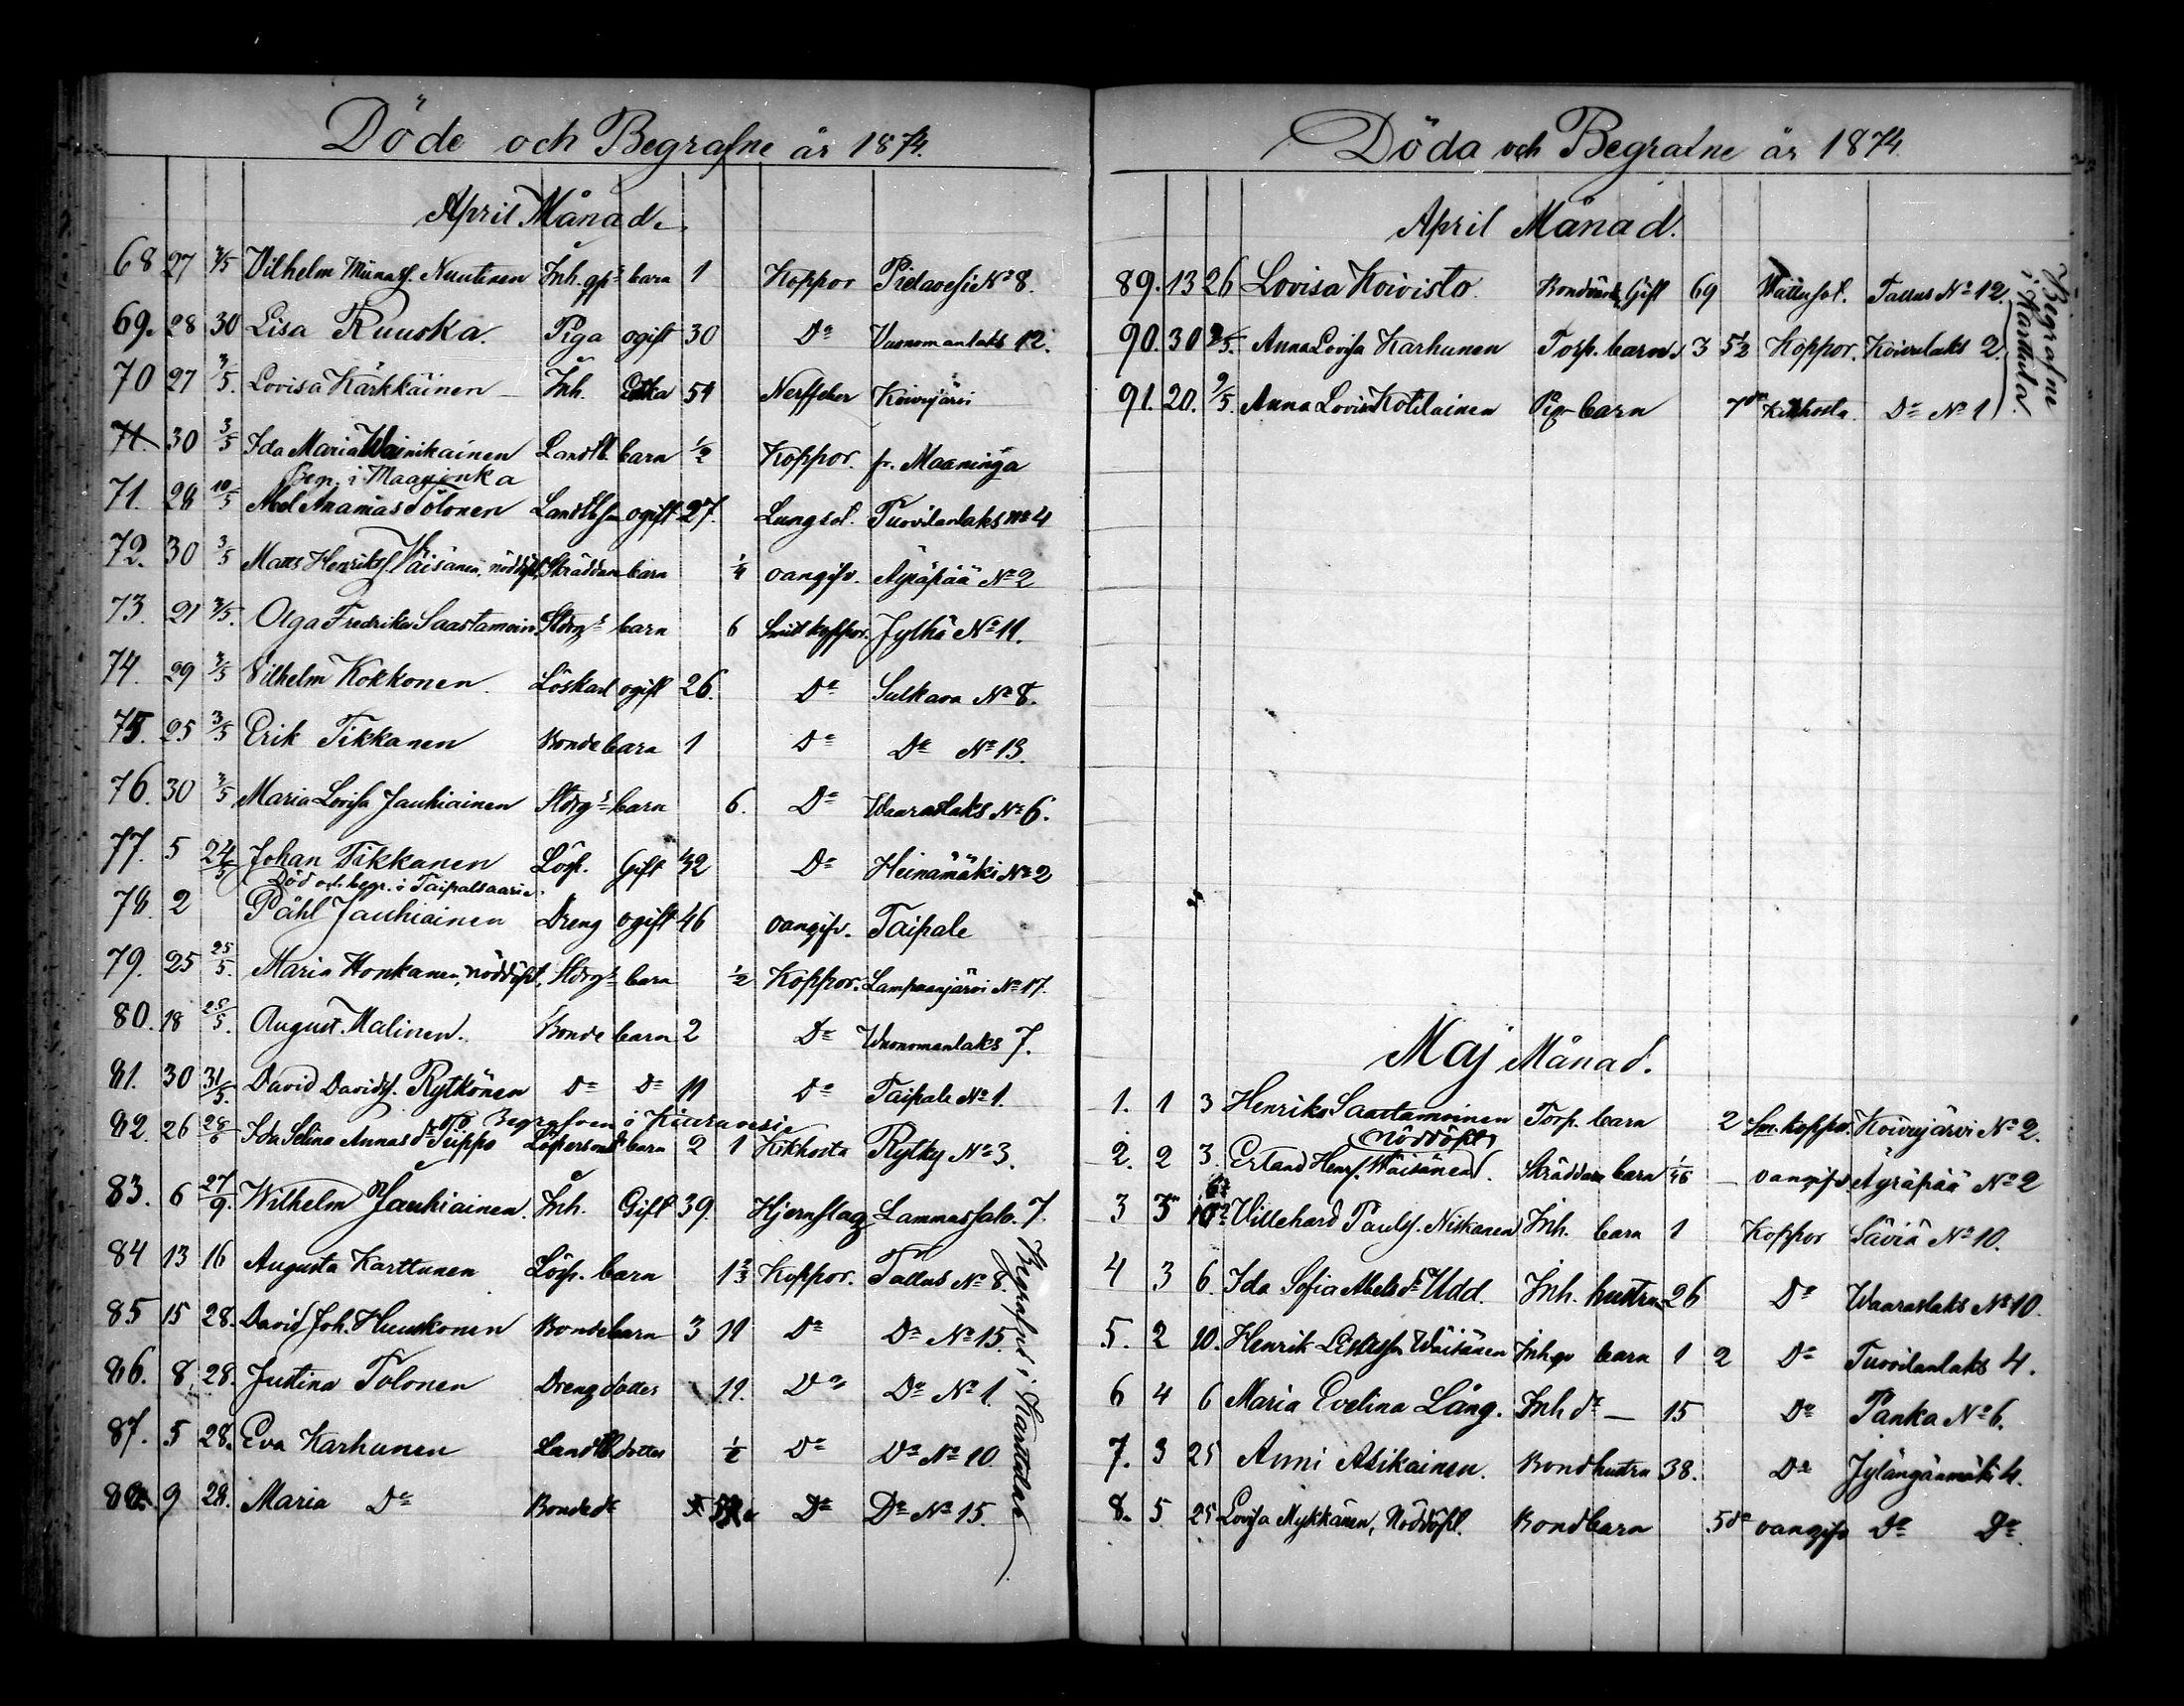 Döde och Begrafne år 1874.
April Månad.
68 27 3/5 Vilhelm Nuutinen Inh. barn 1 Koppor Pielavesi No 8.
69. 28 30 Lisa Ruuska. Piga ogift 30 Do Vuonomanlaks 12.
70 27 3/5. Lovisa Kärkkäinen Inh. Enka 54 Nerffeber Koivujärvi
71. 30 3/5 Ida Maria Wainikainen Landtb. barn 1/2 Koppor. fr. Maaninga
Begr. i Maaninka
71. 28 10/5 Abel Ananias Tolonen ogift 27. Lungsot. Tuovilanlaks No 4
72. 30 3/5 Matts Henriks. Väisänen, nöddöpt, Skräddare barn 1/4 oangifv. Äyräpää No 2
73. 21 3/5. Olga Fredrika Saastamoin. Stdrgs barn 6 Smit koppor. Jylhä No 11.
74. 29 3/5 Vilhelm Kokkonen. Löskarl ogift 26. Do Sulkava No 8.
75. 25 3/5 Erik Tikkanen Bonde barn 1 Do Do No 13.
76. 30 3/5 Maria Lovisa Jauhiainen Stdrgs barn 6. Do Waaraslaks No 6.
77. 5 24/5 Johan Tikkanen Lösp. Gift 42 Do Heinämäki No 2
Död och begr. i Taipalsaari.
78. 2 Påhl Jauhiainen Dreng ogift 46 oangifv. Taipale
79. 25 25/5. Maria Honkanen, nöddöpt, Stdrgs barn 1/2 Koppor. Lampaanjärvi No 17.
80. 18 28/5. August Malinen. Bonde barn 2 Do Wuonomanlaks 7.
81. 30 31/5. David Davids. Rytkönen Do Do 11 Do Taipale No 1.
Begrafven i Kiuruvesi
82. 26 28/6 Ida Selina Annasdr Piippo Löspersons barn 2 1 Kikhosta Rytky No 3.
83. 6 27/9. Wilhelm Jauhiainen. Inh. Gift 39. Hjernslag Lammassalo. 7.
84 13 16 Augusta Karttunen Lösp. barn 1 2/3 Koppor. Tallus No 8.
85 15 28. David Joh. Huuskonen Bondebarn 3 11 Do Do No 15.
86. 8 28. Justina Tolonen Drengdotter 11. Do Do No 1.
87. 5 28. Eva Karhunen Landtb dotter 1/2 Do Do No 10.
88. 9 28. Maria Do Bondedr Do Do No 15.
Begrafne i Karttula
Döda och Begrafne år 1874.
April Månad.
89. 13 26 Lovisa Koivisto. Gift 69 Wattusot. Tallus No 12.
90. 30 9/5. Anna Lovisa Karhunen Torp. barn 3 5 1/2 Koppor. Koivulaks 2.
91. 20. 9/5. Anna Lovisa Kotilainen Pig- barn 7 da Kikhosta. Do No 1
Begrafne i Karttula.
Maj Månad.
1. 1 3 Henrika Saastamoinen Torp. barn 2 Sm. koppor. Koivujärvi No 2.
(Nöddöpt)
2. 2 3. Erland Henr. Wäisänen. Skräddare barn oangifv. Äyräpää No 2
3 3 Villehard Pauls. Niskanen Inh. barn 1 Koppor Säviä No 10.
4 3 6. Ida Sofia Abelsdr Udd. Inh. hustru 26 Do Waaraslaks No 10.
5. 2 10. Henrik Wäisänen Inhgs barn 1 2 Do Tuovilanlaks 4.
6 4 6 Maria Evelina Lång. Inh dr — 15 Do Panka No 6.
7. 3 25 Anni Asikainen. Bondhustru 38. Do Jylängänmäki 4.
8. 5 25 Lovisa Mykkänen, Nöddöpt. Bondbarn 5 da oangifv Do Do.